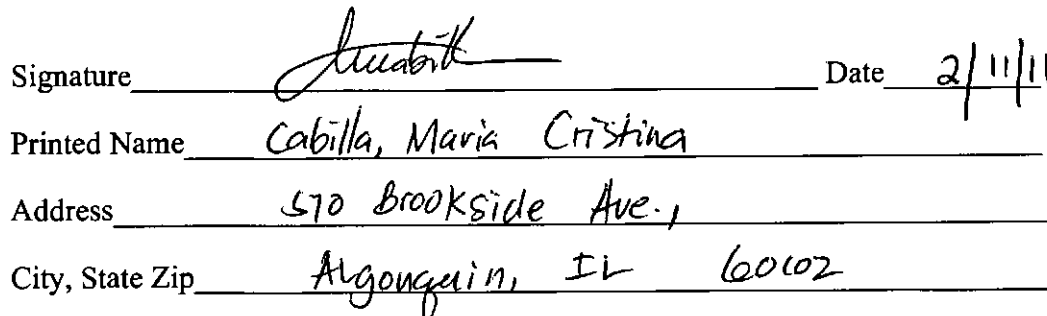 Signature Date 2/11/11
Printed Name Cabilla, Maria Cristina
Address 570 Brookside Ave.,
City, State Zip Algonquin, IL 60102